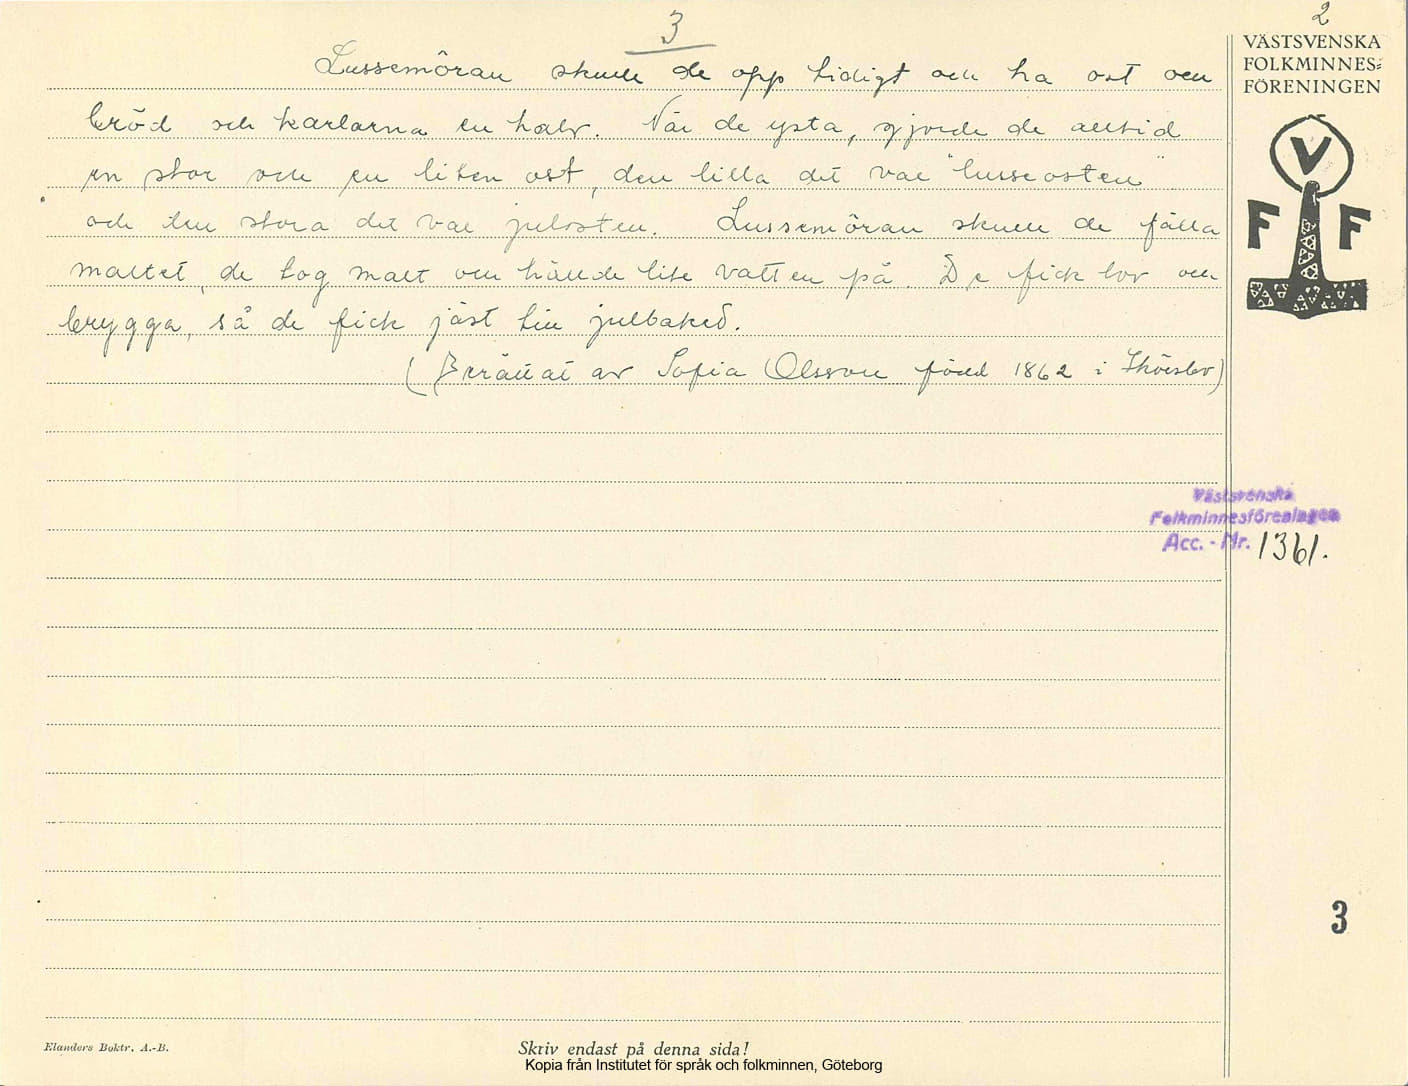 3
2
VÄSTSVENSKA
FOLKMINNES=
FÖRENINGEN
V
F F
Lussemôran skulle de opp tidigt och ha ost och
bröd och karlarna en halv. När de ysta, gjorde de alltid
en stor och en liten ost, den lilla det var "lusseosten"
och den stora det var julosten. Lussemôran skulle de fälla
maltet, de tog malt och hällde lite vatten på. De fick lov och
brygga, så de fick jäst till julbaked.
(Berättat av Sofia Olsson född 1862 i Skörslov)
Västsvenska
Folkminnesföreningen
Acc. - Nr. 1361.
3
Elanders Boktr. A.-B.
Skriv endast på denna sida!
Kopia från Institutet för språk och folkminnen, Göteborg